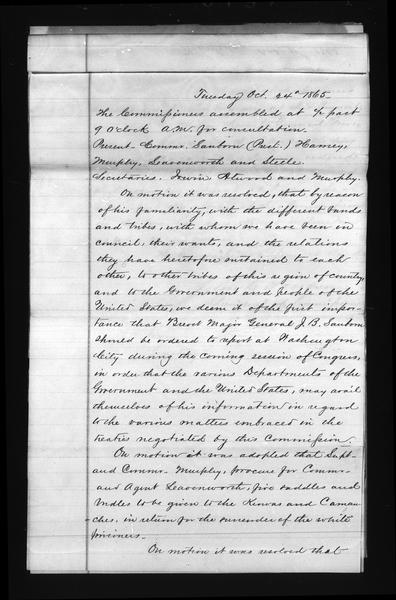 Tuesday Oct. 24th 1865-
The Commissioners assembled at ½ past
9 O'clock A.M. for consultation.
Present - Commr. Sanborn (Prest.) Harney,
Murphy, Leavenworth and Steele.
Secretaries. Irwin Atwood and Murphy.
On motion it was resolved, that by reason
of his familiarity, with the different bands
and tribes, with whom we have been in
council, their wants, and the relations
they have heretofore sustained to each
other, to other tribes of this region of country,
and to the Government and people of the
United States, we deem it of the first impor-
tance that Brevt Major General J. B. Sanborn
should be ordered to report at Washington
City during the coming session of Congress,
in order that the various Departments of the
Government and the United States, may avail
themselves of his information in regard
to the various matters embraced in the
treaties negotiated by this Commission.
On motion it was adopted that Supt-
and Commr. Murphy, procure for Commr-
and Agent Leavenworth, five saddles and
bridles to be given to the Kiowas and Caman-
ches, in return for the surrender of the white
prisoners-
On motion it was resolved that